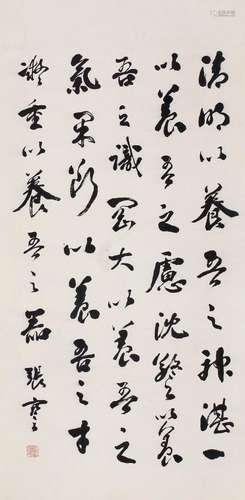 清明以養吾之神湛一
以養吾之慮沈警以養
吾之識剛大以養吾之
氣果斷以養吾之才
凝重以養吾之器
張